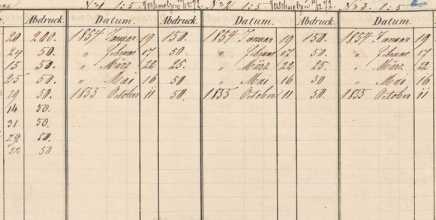 Abdruck. Datum. Abdruck. Datum. Abdruck. Datum.
20 200. 1854 Januar 19 150. 1854 Januar 19 150. 1854 Januar 19
24 50. " Februar 17 50. " Februar 17 50. " Februar 17
15 50. " März 22 25. " März 22 25. " März 22
25 50. " Mai 16 50. " Mai 16 30. " Mai 16
19 50. 1855 October 11 50. 1855 October 11 50. 1855 October 11
14 50.
31 50.
28 50.
22 50